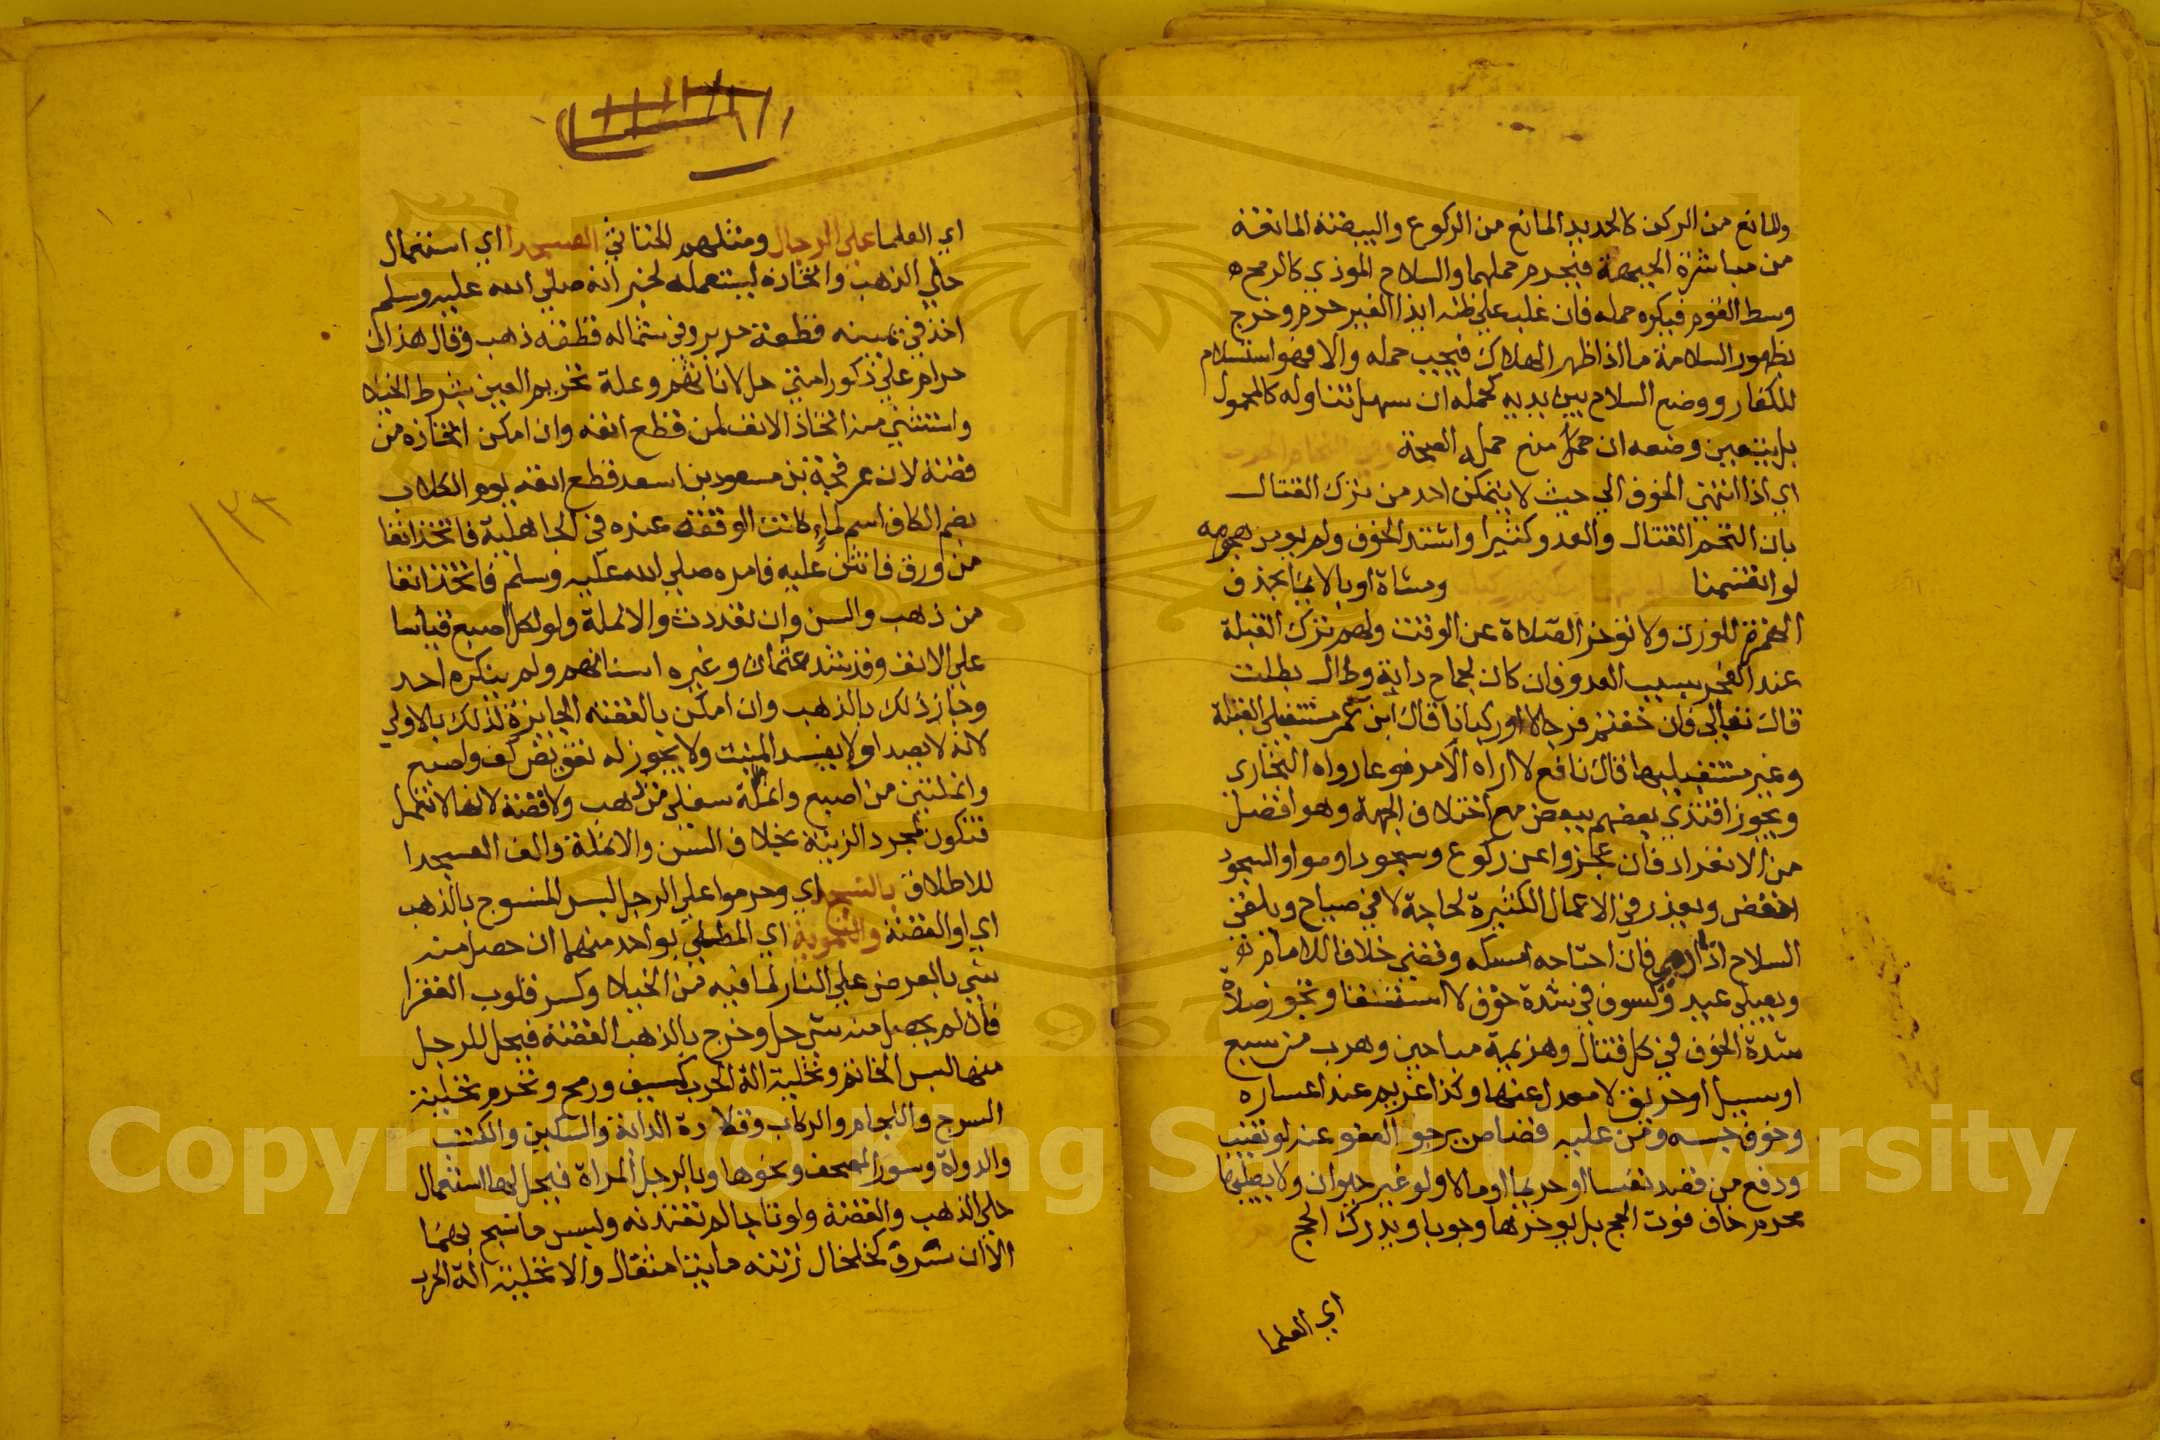 والمانع من الركن كالحديد المانع من الركوع والبيضة المانعة
من مباشرة الجبهة فيحرم حملهما والسلاح الموذي كالرمح
وسط القوم فيكره حمله فان غلب علي ظنه ايذا الغير حرم وخرج
بظهور السلامة ما اذا ظهر الهلاك فيجب حمله والا فهو استسلام
للكفار ووضع السلاح بين يديه كحمله ان سهل تناوله كالمحمول
بل يتعين وضعه ان حمل منع حمله الصحة
اي اذا انتهي الخوف الي حيث لا يتمكن احد من ترك القتال
بان التحم القتال والعدو كثيرا واشتد الخوف ولم يومن هجومه
لو انقسمنا ومشاة او بالايما بحذف
الهمزة للوزن ولا توخر الصلاة عن الوقت ولهم ترك القبلة
عند العجز بسبب العدو فان كان لجماح دابة وطال بطلت
قال تعالي فان خفتم فرجالا او ركبانا قال ابن عمر مستقبلي القبلة
وغير مستقبليها قال نافع لا اراه الا مرفوعا رواه البخاري
ويجوز اقتدي بعضهم ببعض مع اختلاف الجهة وهو افضل
من الانفراد فان عجزوا عن ركوع وسجود اوموا والسجود
اخفض ويعذر في الاعمال الكثيرة لحاجة لا في صياح ويلقي
السلاح اذا دمي فان احتاجه امسكه وقضي خلافا للامام
ويصلي عيد وكسوف في شدة خوف لا استسقا وتجوز صلاة
شدة الخوف في كل قتال وهزيمة مباحين وهرب من سبع
او سيل او حريق لا معدل عنها وكذا غريم عند اعساره
وخوف حبسه ومن عليه قصاص يرجو العفو عنه لو تغيب
ودفع من قصد نفسا او حريما او مالا ولو غير حيوان ولا يصليها
محرم خاف فوت الحج بل يوخرها وجوبا ويدرك الحج
اي العلما
اي العلما علي الرجال ومثلهم الخناثي العسجدا اي استعمال
حلي الذهب واتخاذه ليستعمله لخبر انه صلي الله عليه وسلم
اخذ في يمينه قطعة حرير وفي شماله قطعة ذهب وقال هذان
حرام علي ذكور امتي حل لاناثهم وعلة تحريم العين بشرط الخيلا
واستثني منه اتخاذ الانف لمن قطع انفه وان امكن اتخاذه من
فضة لان عرفجة بن مسعود بن اسعد قطع انفه يوم الكلاب
بضم الكاف اسم لماء كانت الوقعة عنده في الجاهلية فاتخذ انفا
من ورق فانتن عليه فامره صلي الله عليه وسلم فاتخذ انفا
من ذهب والسن وان تعددت والانملة ولو لكل اصبع قياسا
علي الانف وقد شد عثمان وغيره اسنانهم ولم ينكره احد
وجاز ذلك بالذهب وان امكن بالفضة الجايزة لذلك بالاولي
لانه لا يصدا ولا يفسد المنبت ولا يجوز له تعويض كف واصبع
وانملتين من اصبع وانملة سفلي من ذهب ولا فضة لانها لا تعمل
فتكون لمجرد الزينة بخلاف السن والانملة والف العسجدا
للاطلاق بالنسج اي وحرموا علي الرجل لبس المنسوج بالذهب
اي او الفضة والتمويه اي المطلي بواحد منهما ان حصل منه
شي بالعرض علي النار لما فيه من الخيلا وكسر قلوب الفقرا
فان لم يحصل منه شي حل وخرج بالذهب الفضة فيحل للرجل
منها لبس الخاتم وتحلية الة الحرب كسيف ورمح وتحرم تحلية
السرج واللجام والركاب وقلادة الدابة والسكين والكتب
والدواة وسوار المصحف ونحوها وبالرجل المراة فيحل لها استعمال
حلي الذهب والفضة ولو تاجا لم تعتدنه ولبس ما نسج بهما
الا ان سرف كخلخال زنته مايتا مثقال والا تحلية الة الحرب
Copyright © King Saud University
1957